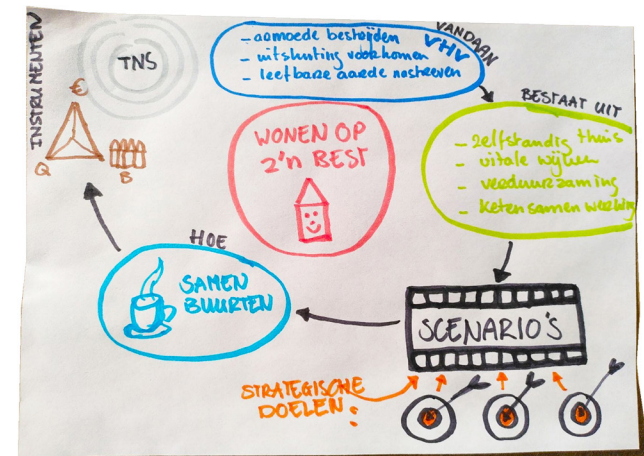 INSTRUMENTEN
TNS
€
Q
B
VANDAAN
VHV
- aomoede bestrijden
- uitsluiting voorkomen
- leefbare aarde nastreven
BESTAAT UIT
- zelfstandig thuis
- vitale wijken
- verduurzaming
- ketensamenwerking
WONEN OP
Z'N BEST
HOE
SAMEN
BUURTEN
SCENARIO'S
STRATEGISCHE
DOELEN: